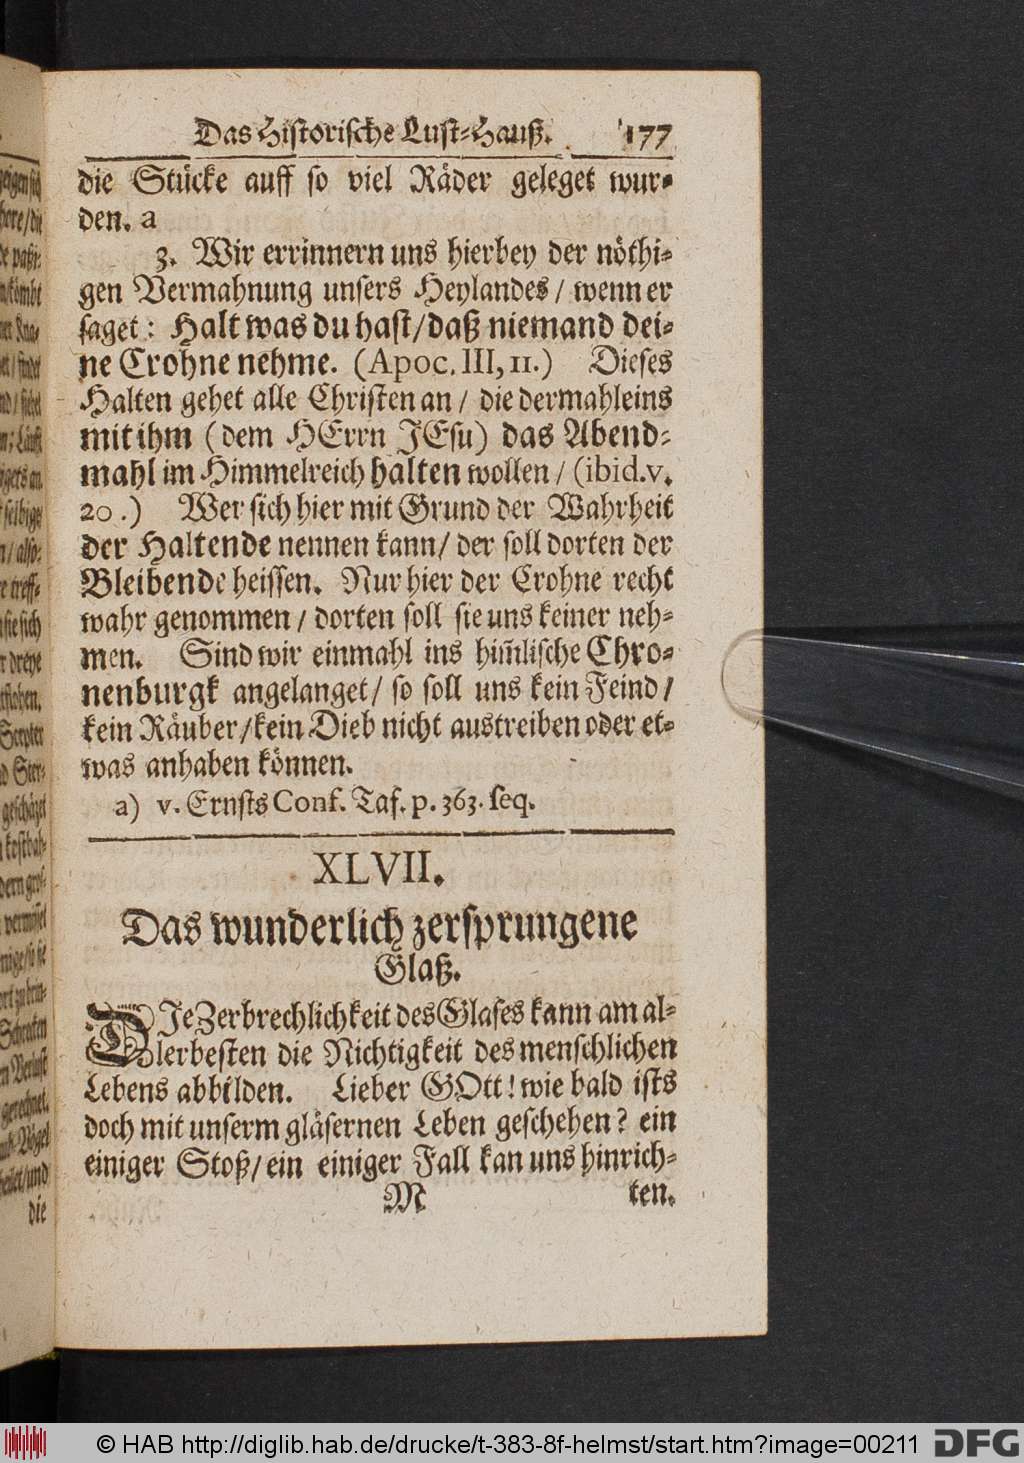 Das Historische Lust-Hauß. 177
die Stücke auff so viel Räder geleget wur-
den. a
3. Wir errinnern uns hierbey der nöthi-
gen Vermahnung unsers Heylandes / wenn er
saget: Halt was du hast / daß niemand dei-
ne Crohne nehme. (Apoc. III, 11.) Dieses
Halten gehet alle Christen an / die dermahleins
mit ihm (dem HErrn JEsu) das Abend-
mahl im Himmelreich halten wollen / (ibid. v.
20.) Wer sich hier mit Grund der Wahrheit
der Haltende nennen kann / der soll dorten der
Bleibende heissen. Nur hier der Crohne recht
wahr genommen / dorten soll sie uns keiner neh-
men. Sind wir einmahl ins him̃lische Chro-
nenburgk angelanget / so soll uns kein Feind /
kein Räuber / kein Dieb nicht austreiben oder et-
was anhaben können.
a) v. Ernsts Conf. Taf. p. 363. seq.
XLVII.
Das wunderlich zersprungene
Glaß.
DIe Zerbrechlichkeit des Glases kann am al-
lerbesten die Nichtigkeit des menschlichen
Lebens abbilden. Lieber GOtt! wie bald ists
doch mit unserm gläsernen Leben geschehen? ein
einiger Stoß / ein einiger Fall kan uns hinrich-
M ten.
© HAB http://diglib.hab.de/drucke/t-383-8f-helmst/start.htm?image=00211 DFG